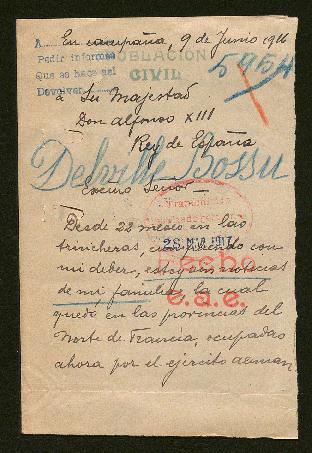 A
En campaña, 9 de Junio 1916
Pedir informes
POBLACION
Que se hace así
CIVIL
Devolver
5954
a Su Majestad
Don Alfonso XIII
Rey de España
Delville Bossu
Excmo Señor
Desde 22 meses en las
trincheras, cumpliendo con
mi deber, estoy sin noticias
de mi familia, la cual
quedó en las provincias del
Norte de Francia, ocupadas
ahora por el ejército aleman.
Transmitida
28 1917
Hecho
e.a.e.